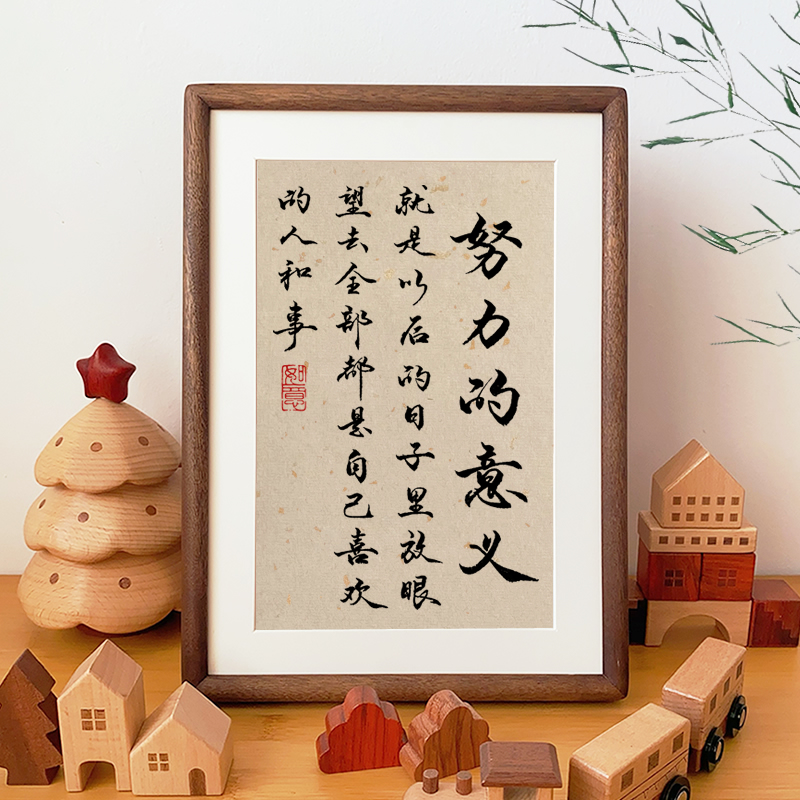 努力的意义
就是以后的日子里放眼
望去全部都是自己喜欢
的人和事
如意